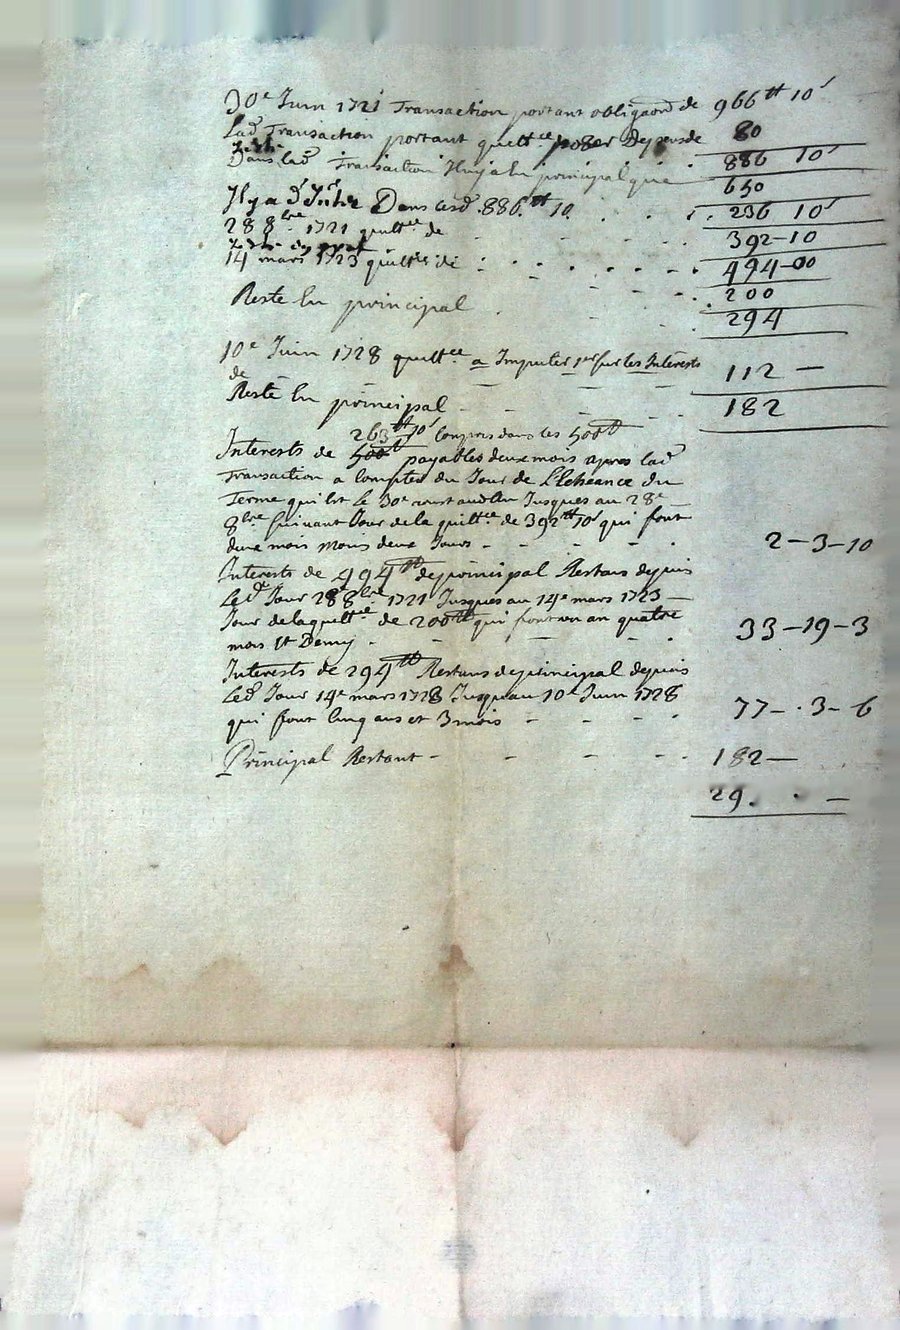 30e Juin 1721 Transaction portant obligaon de 966tt 10s
Lad Transaction portant quitt.ce pour Depens de 80
Dans lad Transaction Il ny a En principal que 886 10s
650
Il y a d Dans lesd. 886.tt 10 236 10s
28 8bre 1721 quitt.ce de 392-10
494-00
14 mars 1723 quittce de 200
Reste En principal 294
10e Juin 1728 quittce a Imputer 1er sur les Interests
de 112 —
Reste En principal 182
263tt 10s Compris dans les 500tt
Interests de 500tt payables deux mois apres lad
Transaction a Compter du Jour de L'Echeance du
Terme qui Est Le 30e aud. an Jusques au 28e
8bre suivant Jour de la quittce de 392tt 10s qui font
deux mois moins deux Jours - - - 2-3-10
Interests de 494tt de principal Restans depuis
Led Jour 28 8bre 1721 Jusques au 14e mars 1723 —
Jour de la quittce de 200tt qui font un an quatre
mois Et Demy - - - 33-19-3
Interests de 294tt Restans de principal depuis
Led Jour 14e mars 1723 Jusqu'au 10e Juin 1728
qui font Cinq ans et 3 mois - - - 77-.3-6
Principal Restant - - - 182—
29. . —